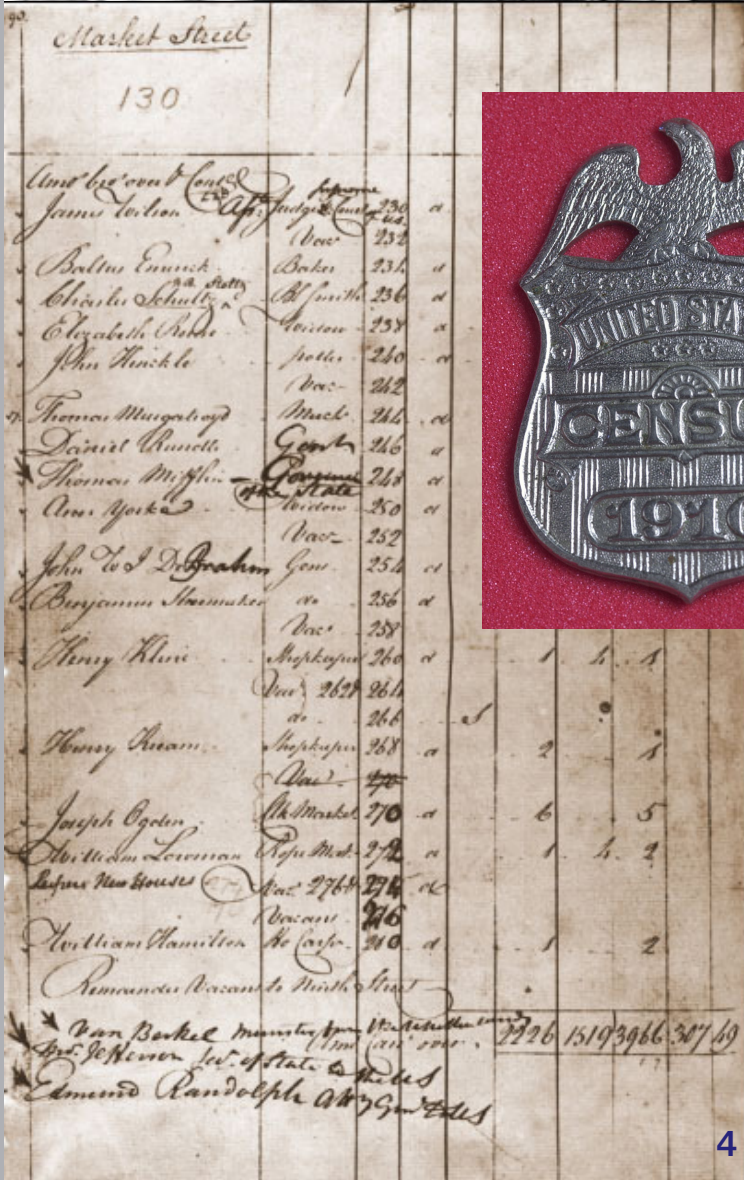 90.
Market Street
130
Amot bro't over
James Wilson Judge Supreme 230 a
Vac 232
Baltus Emerick Baker 234 a
Charles Schultz Bl Smith 236 a
Elizabeth Widow 238 a
John Hinckle potter 240 a
Vac 242
Thomas Murgatroyd Merch 244 a
Daniel Rundle Gent 246 a
Thomas Mifflin Governor of the State 248 a
Ann Yorke Widow 250 a
Vac 252
John Brahm Gent 254 a
Benjamin Shoemaker do 256 a
Vac 258
Henry Kline Shopkeeper 260 a 1 4 1
Vac 262 & 264
do 266
Henry Shopkeeper 268 a 2 1
Vac 270
Joseph Ogden Clk Market 270 a 6 5
William Lowman 272 a 1 4 2
New Houses Vac 276 & 274
Vacant 276
William Hamilton Ho Carpr 280 a 1 2
Remainder Vacant to Ninth Street
Van Berkel Minister
Amt carr over 2226 1519 3966 307 49
Mr. Jefferson Sec. of State
Edmund Randolph Atty Genl
UNITED STA
CENSU
1910
4